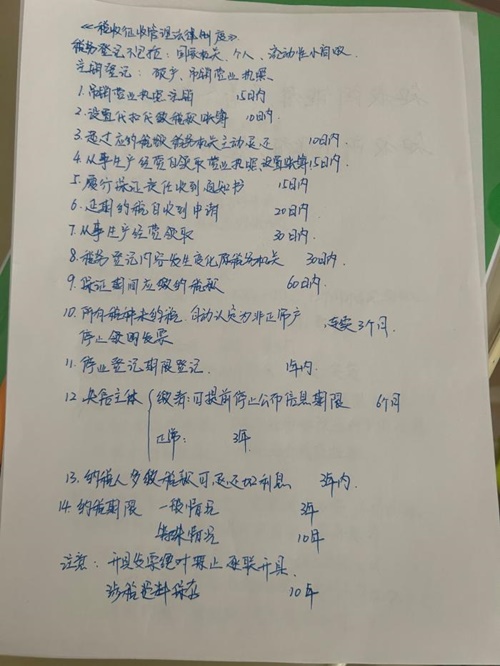 《税收征收管理法律制度》
税务登记不包括：国家机关、个人、流动性小商贩
注销登记：破产、吊销营业执照
1.吊销营业执照注销 15日内
2.设置代扣代缴税款账簿 10日内
3.超过应纳税额税务机关主动退还 10日内
4.从事生产经营自领取营业执照,设置账簿15日内
5.履行保证责任收到通知书 15日内
6.延期纳税自收到申请 20日内
7.从事生产经营领取 30日内
8.税务登记内容发生变化原税务机关 30日内
9.保证期间应缴纳税款 60日内
10.所有税种未纳税,自动认定为非正常户 连续3个月
停止领用发票
11.停业登记期限登记 1年内
12.失信主体 缴者:可提前停止公布信息期限 6个月
正常: 3年
13.纳税人多缴税款可退还加利息 3年内
14.纳税期限 一般情况 3年
特殊情况 10年
注意：开具发票 禁止 开具
涉税资料保存 10年